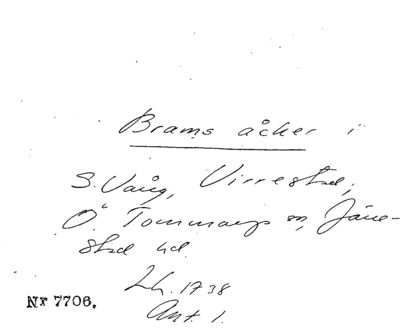 Brams åker i
S. Vång, Virrestad,
Ö. Tommarps sn, Järre-
stad hd.
Lh. 1738
Ant. 1.
Nr 7706.